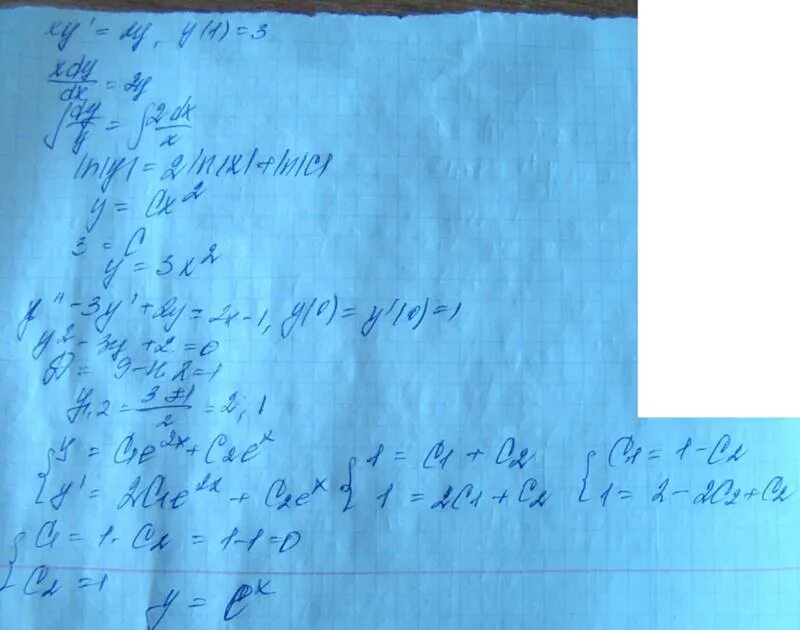 xy' = 2y, y(1) = 3
xdy/dx = 2y
∫dy/y = ∫2dx/x
ln|y| = 2ln|x| + ln|C|
y = Cx²
3 = C
y = 3x²
y'' - 3y' + 2y = 2x - 1, y(0) = y'(0) = 1
y² - 3y + 2 = 0
D = 9 - 4·2 = 1
y1,2 = (3±1)/2 = 2; 1
{ y = C1e^2x + C2e^x { 1 = C1 + C2 { C1 = 1 - C2
y' = 2C1e^2x + C2e^x 1 = 2C1 + C2 1 = 2 - 2C2 + C2
{ C1 = 1 - C2 = 1 - 1 = 0
C2 = 1
y = e^x